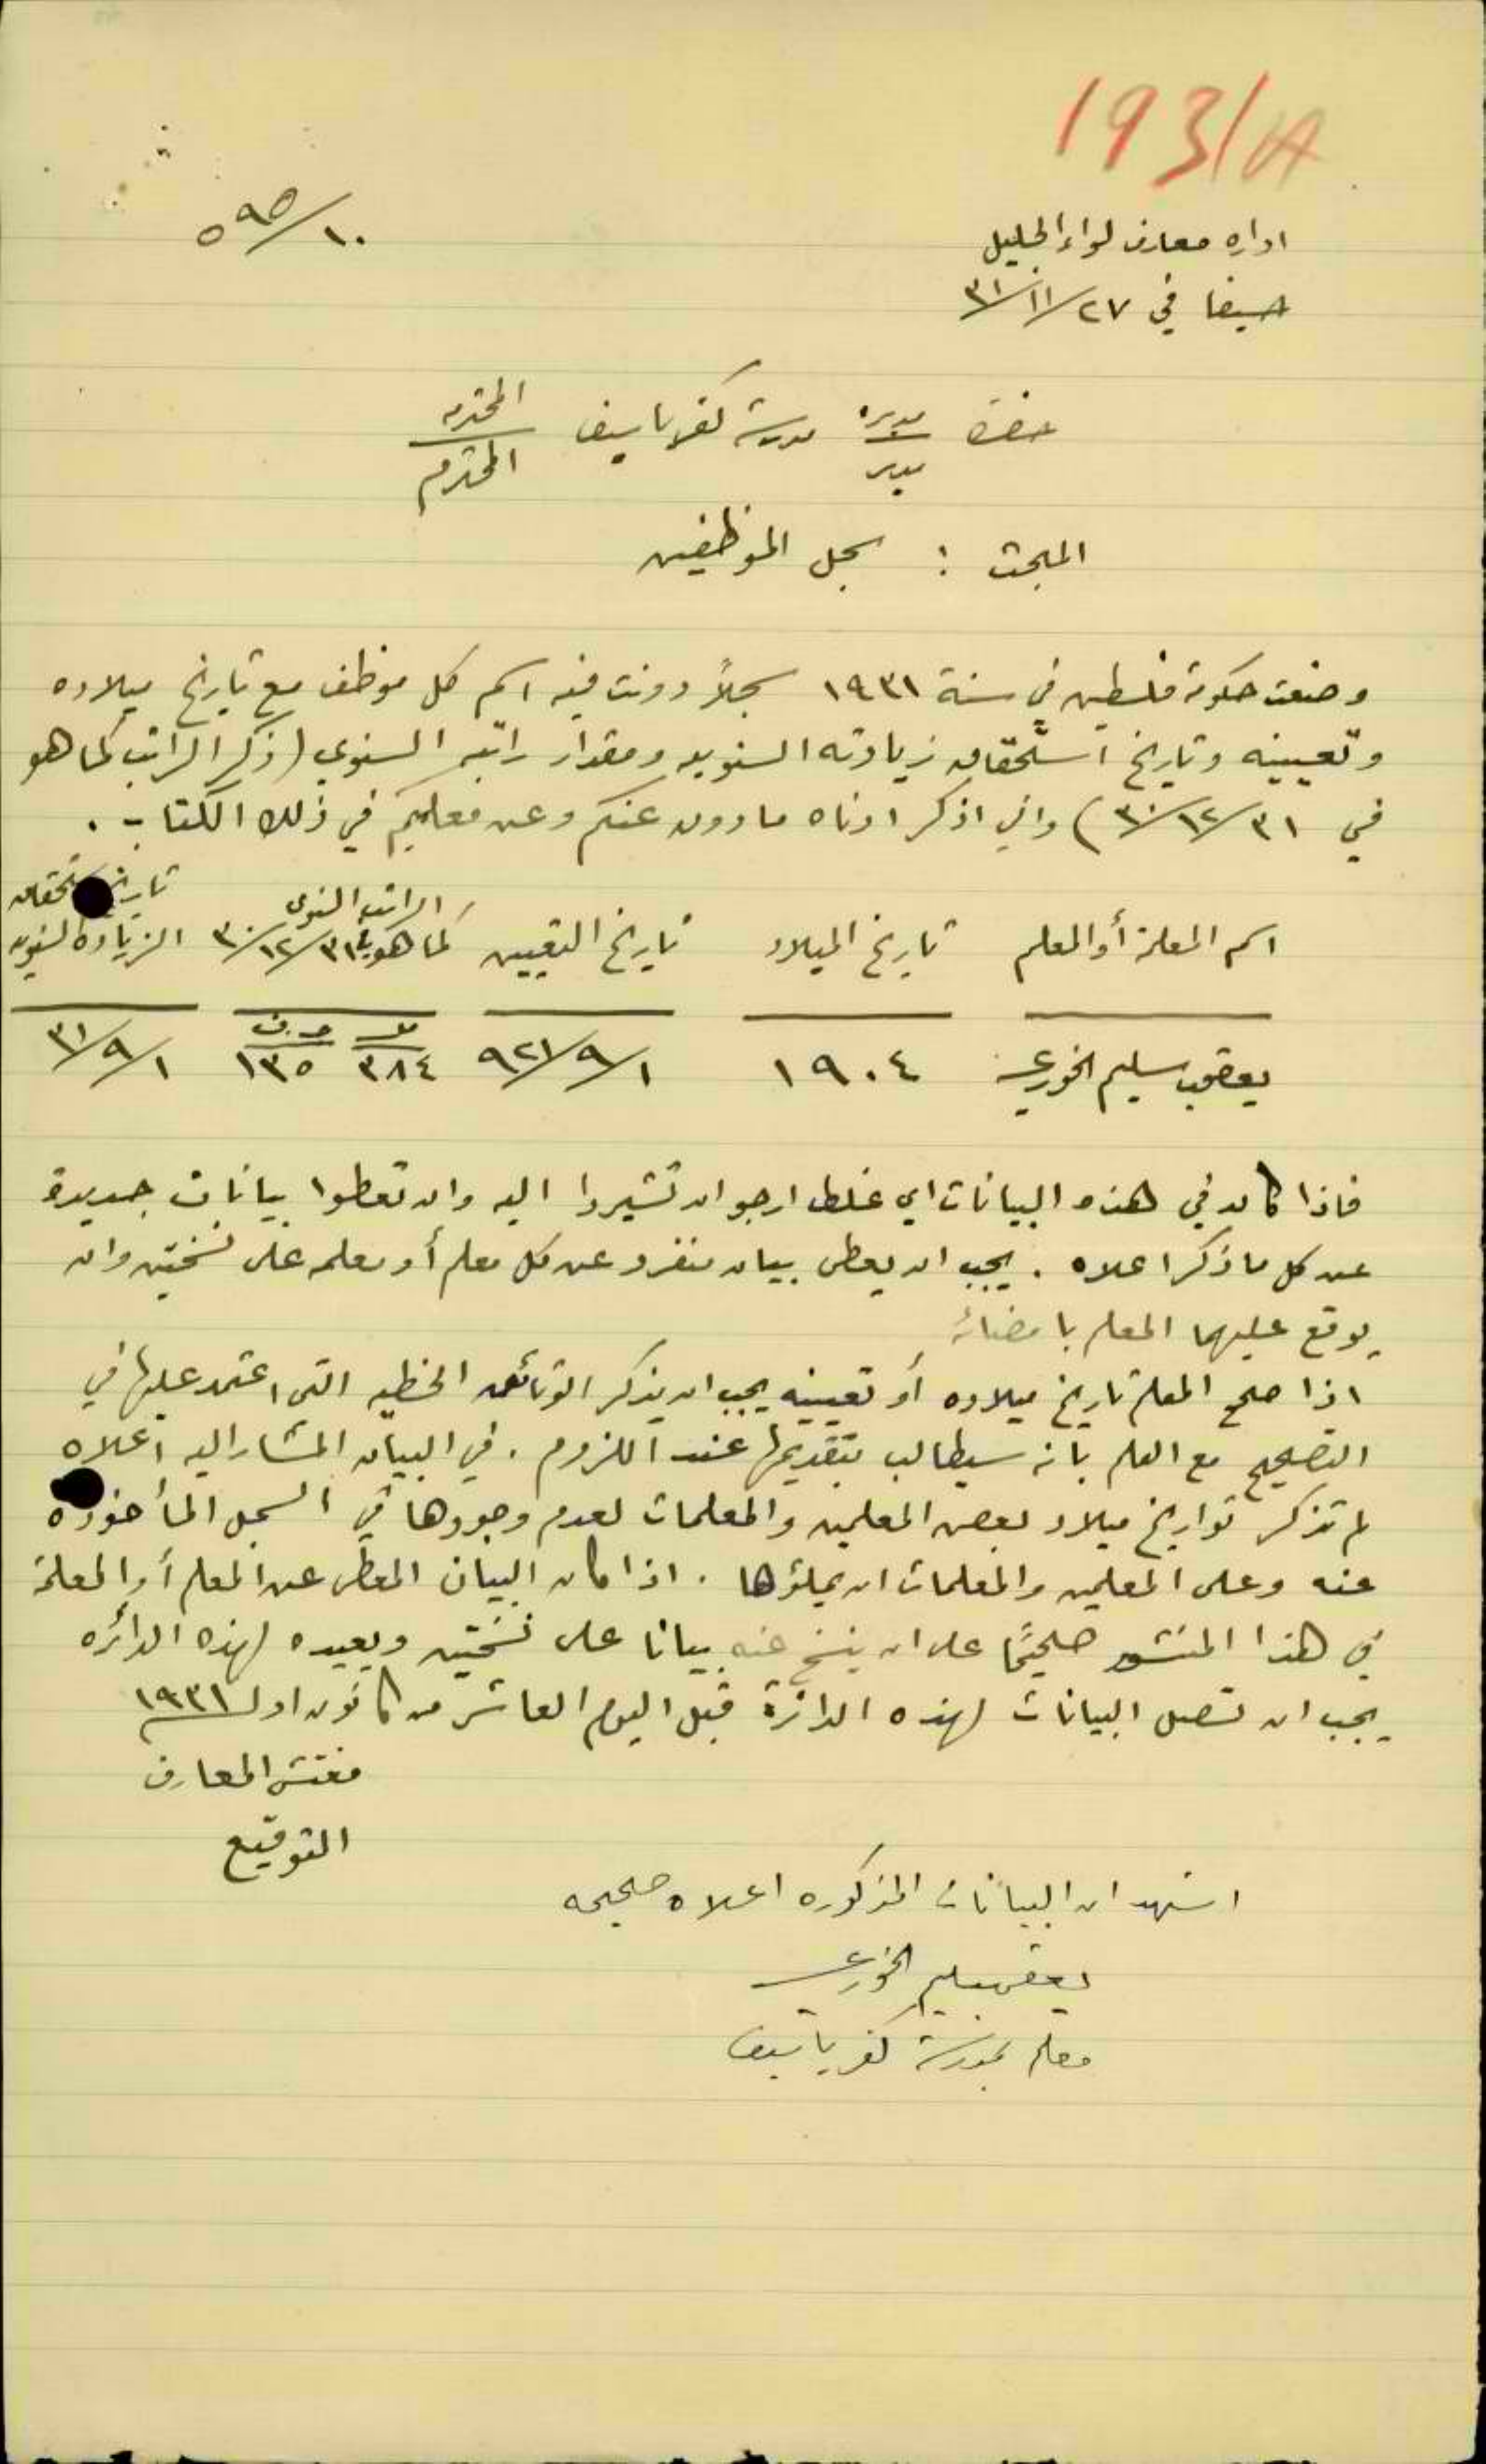 193/A
٥٩٥/١٠
اداره معارف لواء الجليل
حيفا في ٢٧/١١/٣١
حضرة مديرة مدرسة كفرياسيف المحترمه
مدير المحترم
المبحث : سجل الموظفين
وضعت حكومة فلسطين في سنة ١٩٣١ سجلاً دونت فيه اسم كل موظف مع تاريخ ميلاده
وتعيينه وتاريخ استحقاق زيادته السنويه ومقدار راتبه السنوي (ذكر الراتب كما هو
في ٣١/١٢/٣٠) واني اذكر ادناه ما دون عنكم وعن معلميكم في ذلك الكتاب .
اسم المعلمة أو المعلم تاريخ الميلاد تاريخ التعيين الراتب السنوي كما هو في ٣١/١٢/٣٠ تاريخ استحقاق الزيادة السنويه
يعقوب سليم الخوري ١٩٠٤ ١/٩/٩٢١ ٣٨٤ ١٣٥ ١/٩/٣١
فاذا كان في هذه البيانات اي غلط ارجو ان تشيروا اليه وان تعطوا بيانات جديدة
عن كل ما ذكر اعلاه . يجب ان يعطى بيان منفرد عن كل معلم أو معلمه على نسختين وان
يوقع عليهما المعلم بامضائه
اذا صحح المعلم تاريخ ميلاده أو تعيينه يجب ان يذكر الوثائق الخطيه التي اعتمد عليها في
التصحيح مع العلم بانه سيطالب بتقديمها عند اللزوم . في البيان المشار اليه اعلاه
لم تذكر تواريخ ميلاد بعض المعلمين والمعلمات لعدم وجودها في السجل المأخوذه
عنه وعلى المعلمين والمعلمات ان يملؤها . اذا كان البيان المعطى عن المعلم أو المعلمة
في هذا المنشور صحيحًا على ان ينسخ عنه بيانا على نسختين ويعيده لهذه الدائره
يجب ان تصل البيانات لهذه الدائرة قبل اليوم العاشر من كانون اول ١٩٣١
مفتش المعارف
التوقيع
اشهد ان البيانات المذكوره اعلاه صحيحه
يعقوب سليم الخوري
معلم بمدرسة كفرياسيف